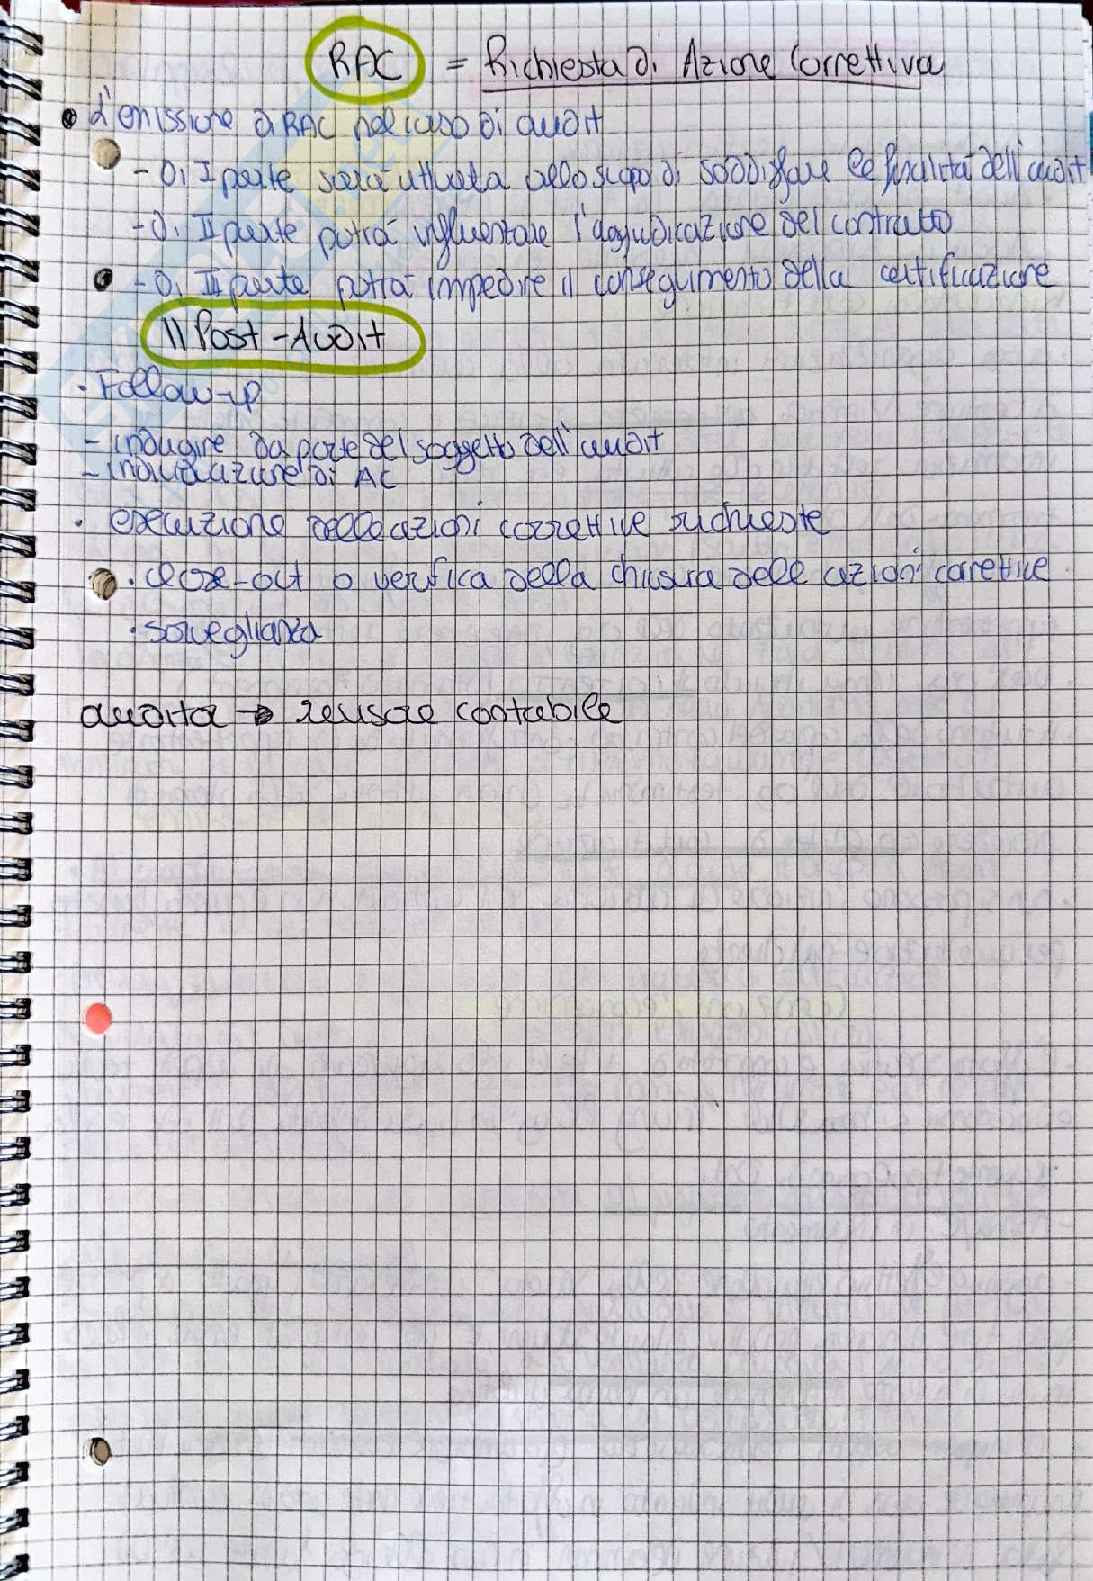 RAC = Richiesta di Azione Correttiva
• L'emissione di RAC nel caso di audit
- di I parte sarà utilizzata allo scopo di soddisfare le finalità dell'audit
- di II parte potrà influenzare l'aggiudicazione del contratto
- di III parte potrà impedire il conseguimento della certificazione
Il Post-Audit
• Follow-up
- indagine da parte del soggetto dell'audit
- individuazione di AC
• esecuzione delle azioni correttive richieste
• close-out o verifica della chiusura delle azioni correttive
• sorveglianza
→ contabile